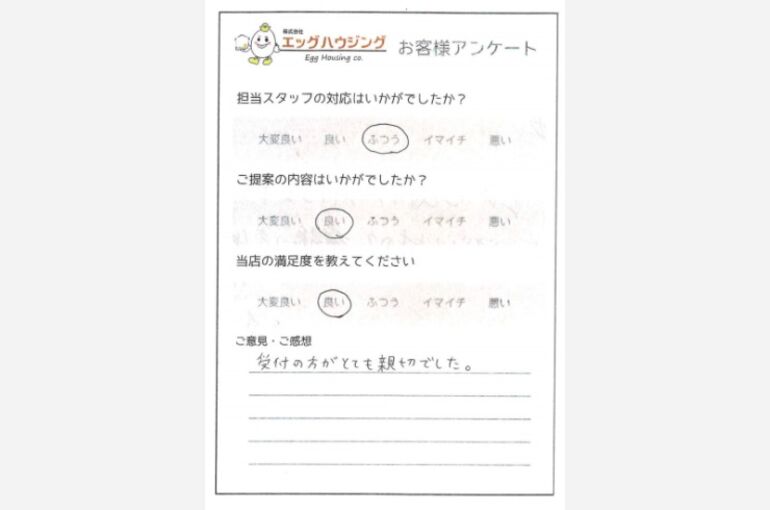 株式会社
エッグハウジング
Egg Housing co.
お客様アンケート
担当スタッフの対応はいかがでしたか？
大変良い 良い ふつう イマイチ 悪い
ご提案の内容はいかがでしたか？
大変良い 良い ふつう イマイチ 悪い
当店の満足度を教えてください
大変良い 良い ふつう イマイチ 悪い
ご意見・ご感想
受付の方がとても親切でした。